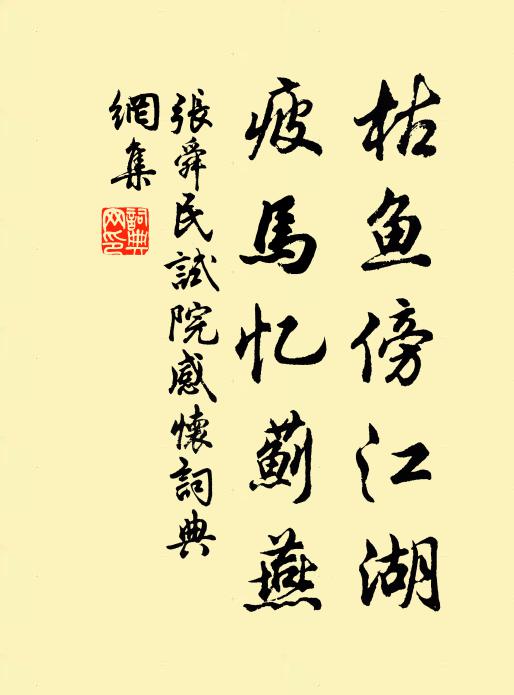 枯鱼傍江湖
疲馬忆薊燕
張舜民試院感懷詞典
網集
詞典網印